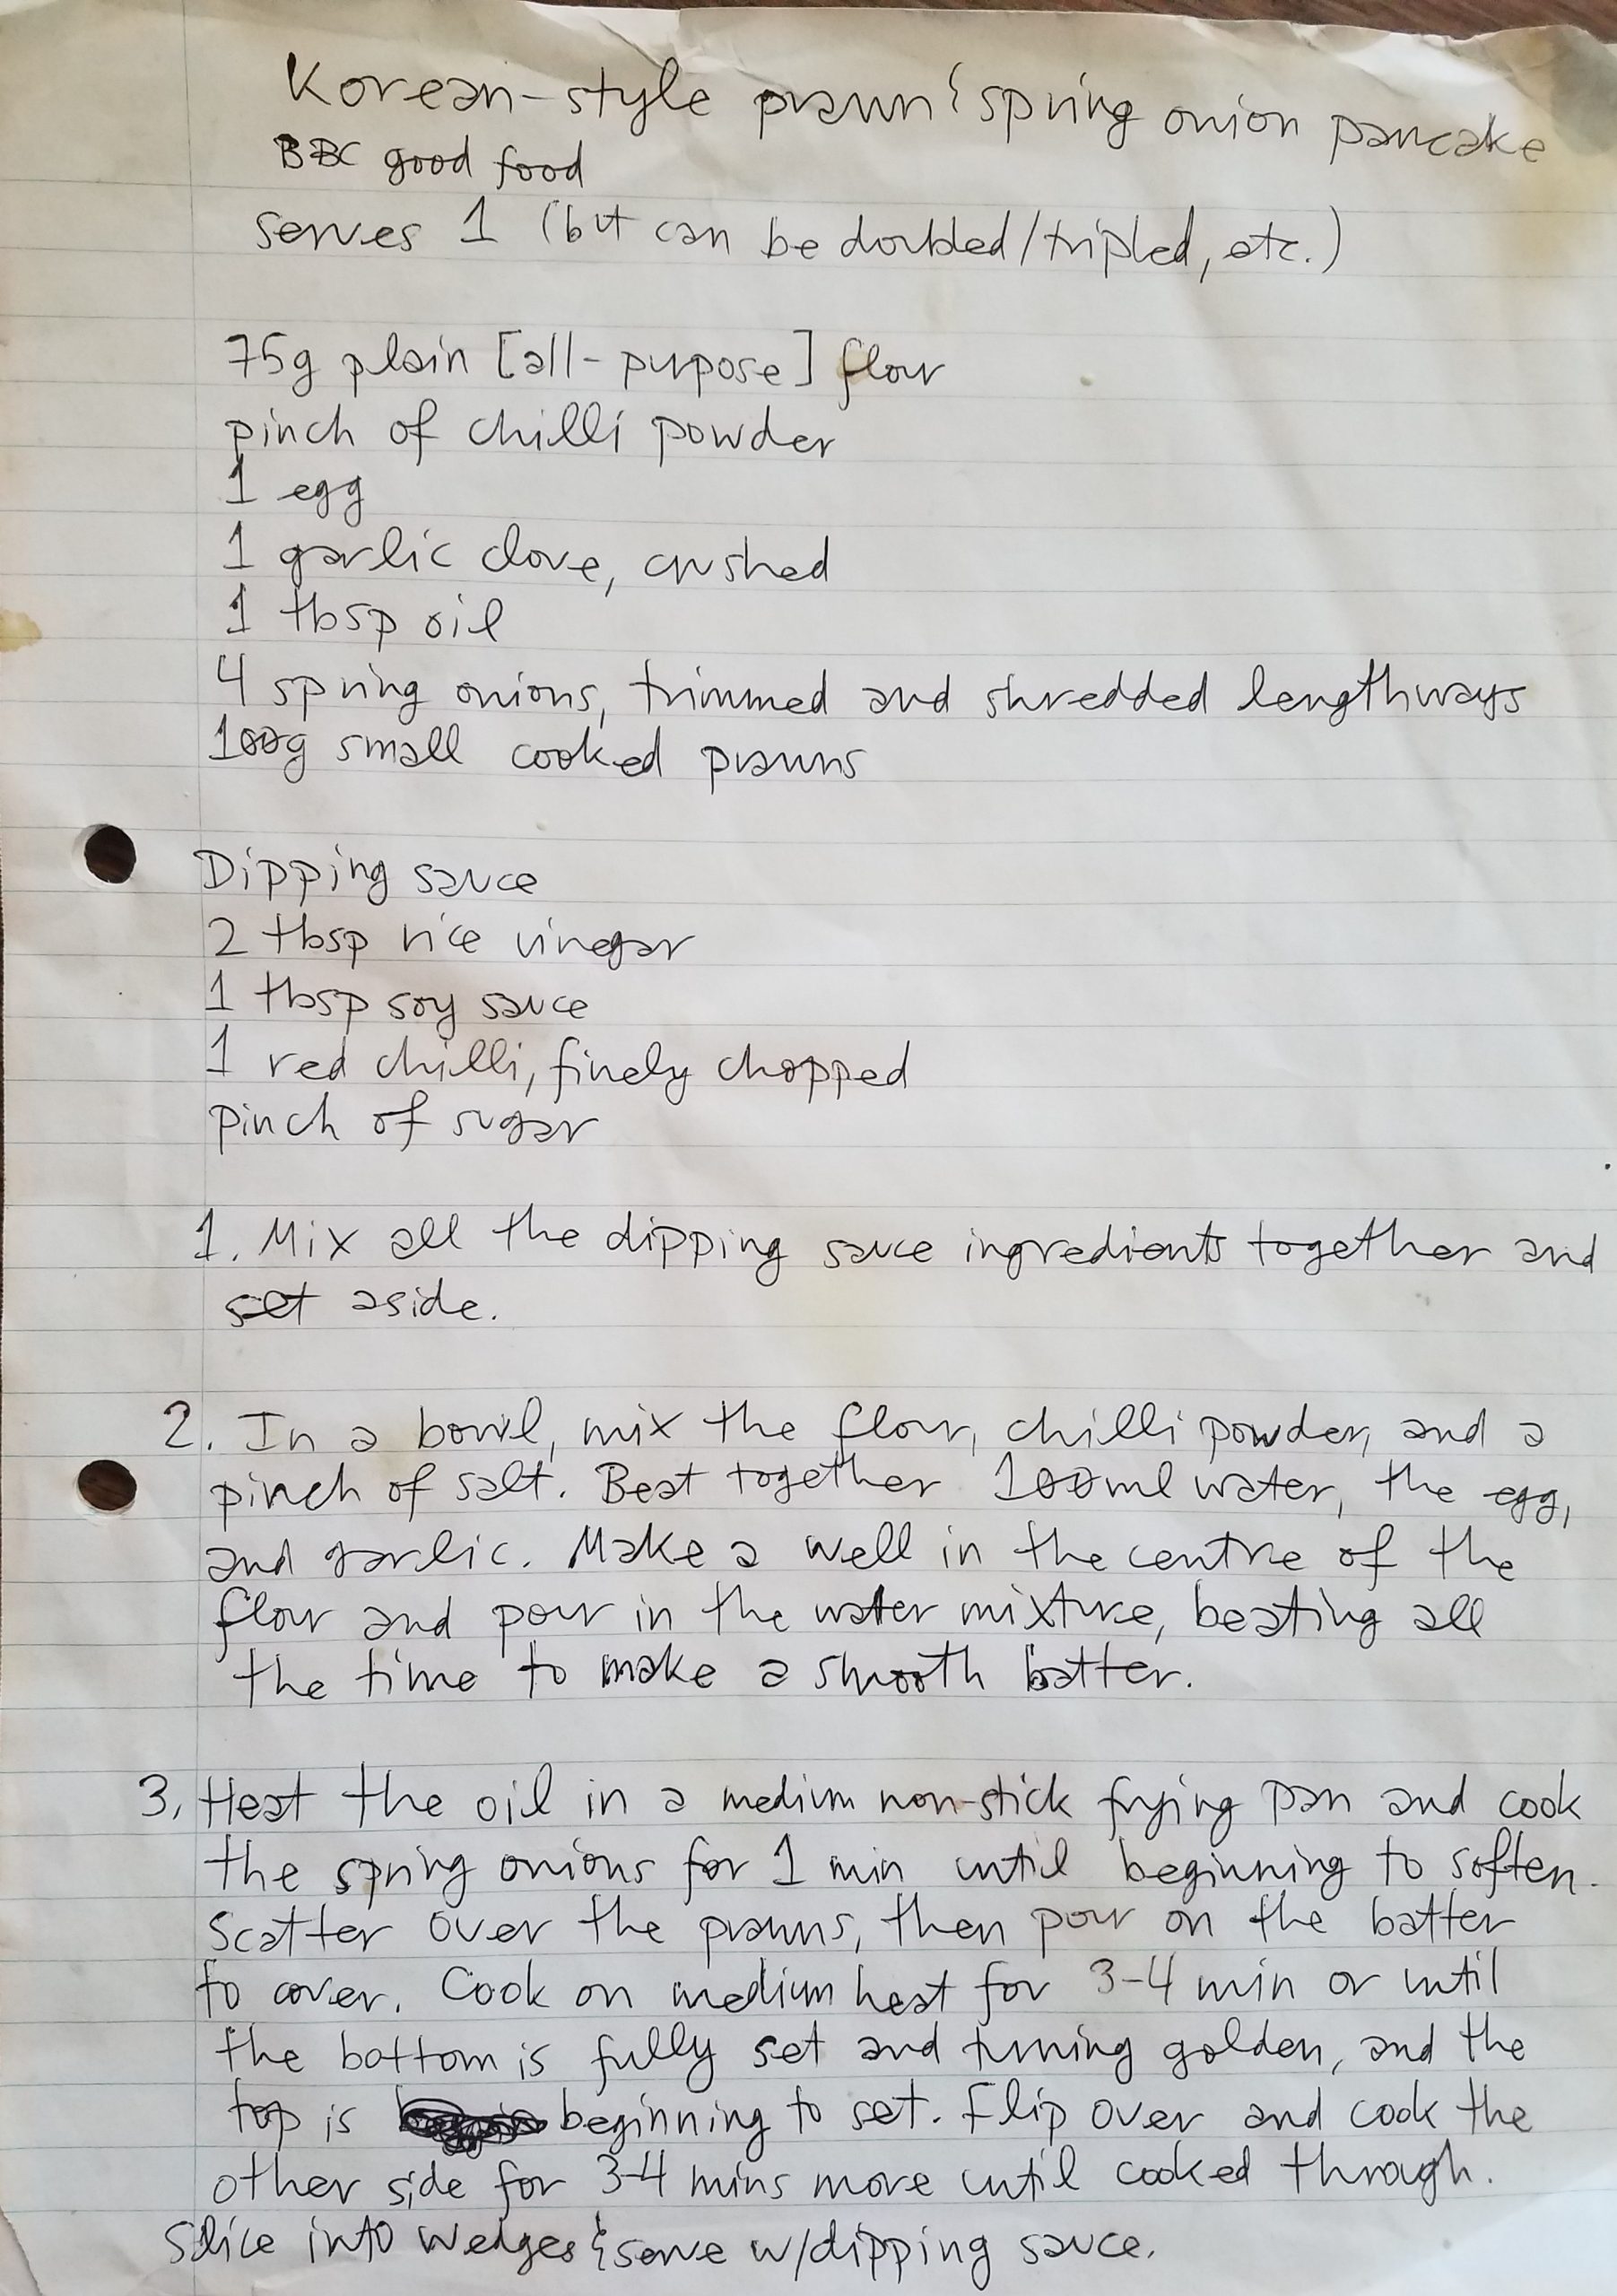 Korean-style prawn & spring onion pancake
BBC good food
serves 1 (but can be doubled/tripled, etc.)
75g plain [all-purpose] flour
pinch of chilli powder
1 egg
1 garlic clove, crushed
1 tbsp oil
4 spring onions, trimmed and shredded lengthways
100g small cooked prawns
Dipping sauce
2 tbsp rice vinegar
1 tbsp soy sauce
1 red chilli, finely chopped
pinch of sugar
1. Mix all the dipping sauce ingredients together and
set aside.
2. In a bowl, mix the flour, chilli powder, and a
pinch of salt. Beat together 100ml water, the egg,
and garlic. Make a well in the centre of the
flour and pour in the water mixture, beating all
the time to make a smooth batter.
3. Heat the oil in a medium non-stick frying pan and cook
the spring onions for 1 min until beginning to soften.
Scatter over the prawns, then pour on the batter
to cover. Cook on medium heat for 3-4 min or until
the bottom is fully set and turning golden, and the
top is beginning to set. Flip over and cook the
other side for 3-4 mins more until cooked through.
Slice into wedges & serve w/dipping sauce.